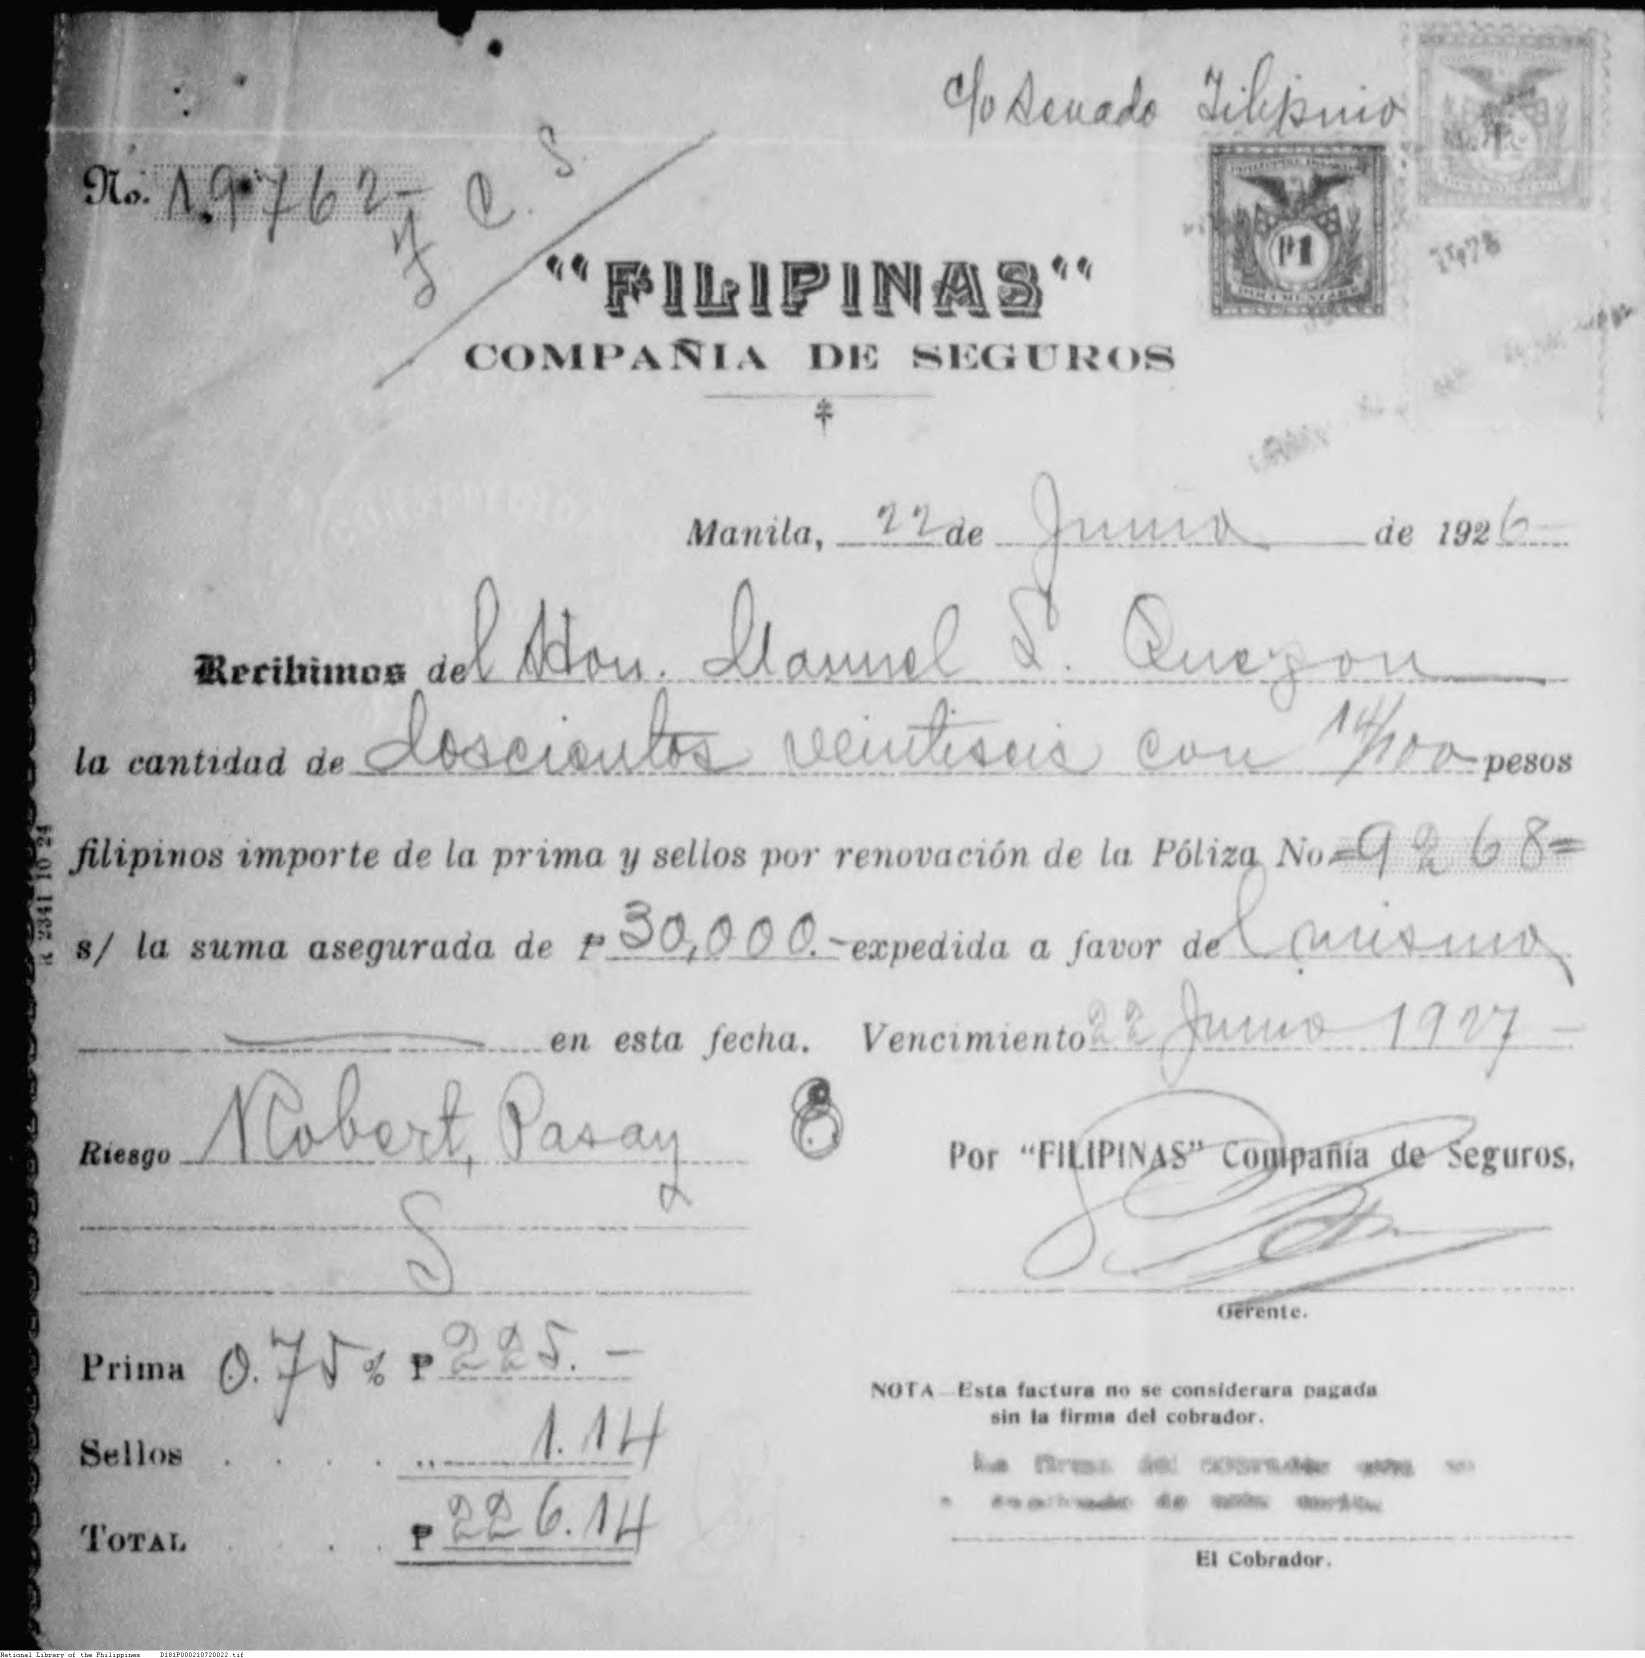 c/o Senado Filipino
No. 19762-
J C. S.
P1
DOCUMENTARY
"FILIPINAS"
COMPAÑIA DE SEGUROS
Manila, 22 de Junio de 1926
Recibimos del Hon. Manuel L. Quezon
la cantidad de doscientos veintiseis con 14/100 pesos
filipinos importe de la prima y sellos por renovación de la Póliza No. =9268=
s/ la suma asegurada de ₱ 30,000.- expedida a favor del mismo
en esta fecha. Vencimiento 22 Junio 1927 -
Riesgo Robert, Pasay
S
Por "FILIPINAS" Compañía de Seguros,
Gerente.
Prima 0.75% ₱ 225. -
Sellos . . . . „ 1.14
TOTAL . . . ₱ 226.14
NOTA - Esta factura no se considerara pagada
sin la firma del cobrador.
La firma del cobrador
El Cobrador.
R 2341 10 24
National Library of the Philippines D181P000210720022.tif